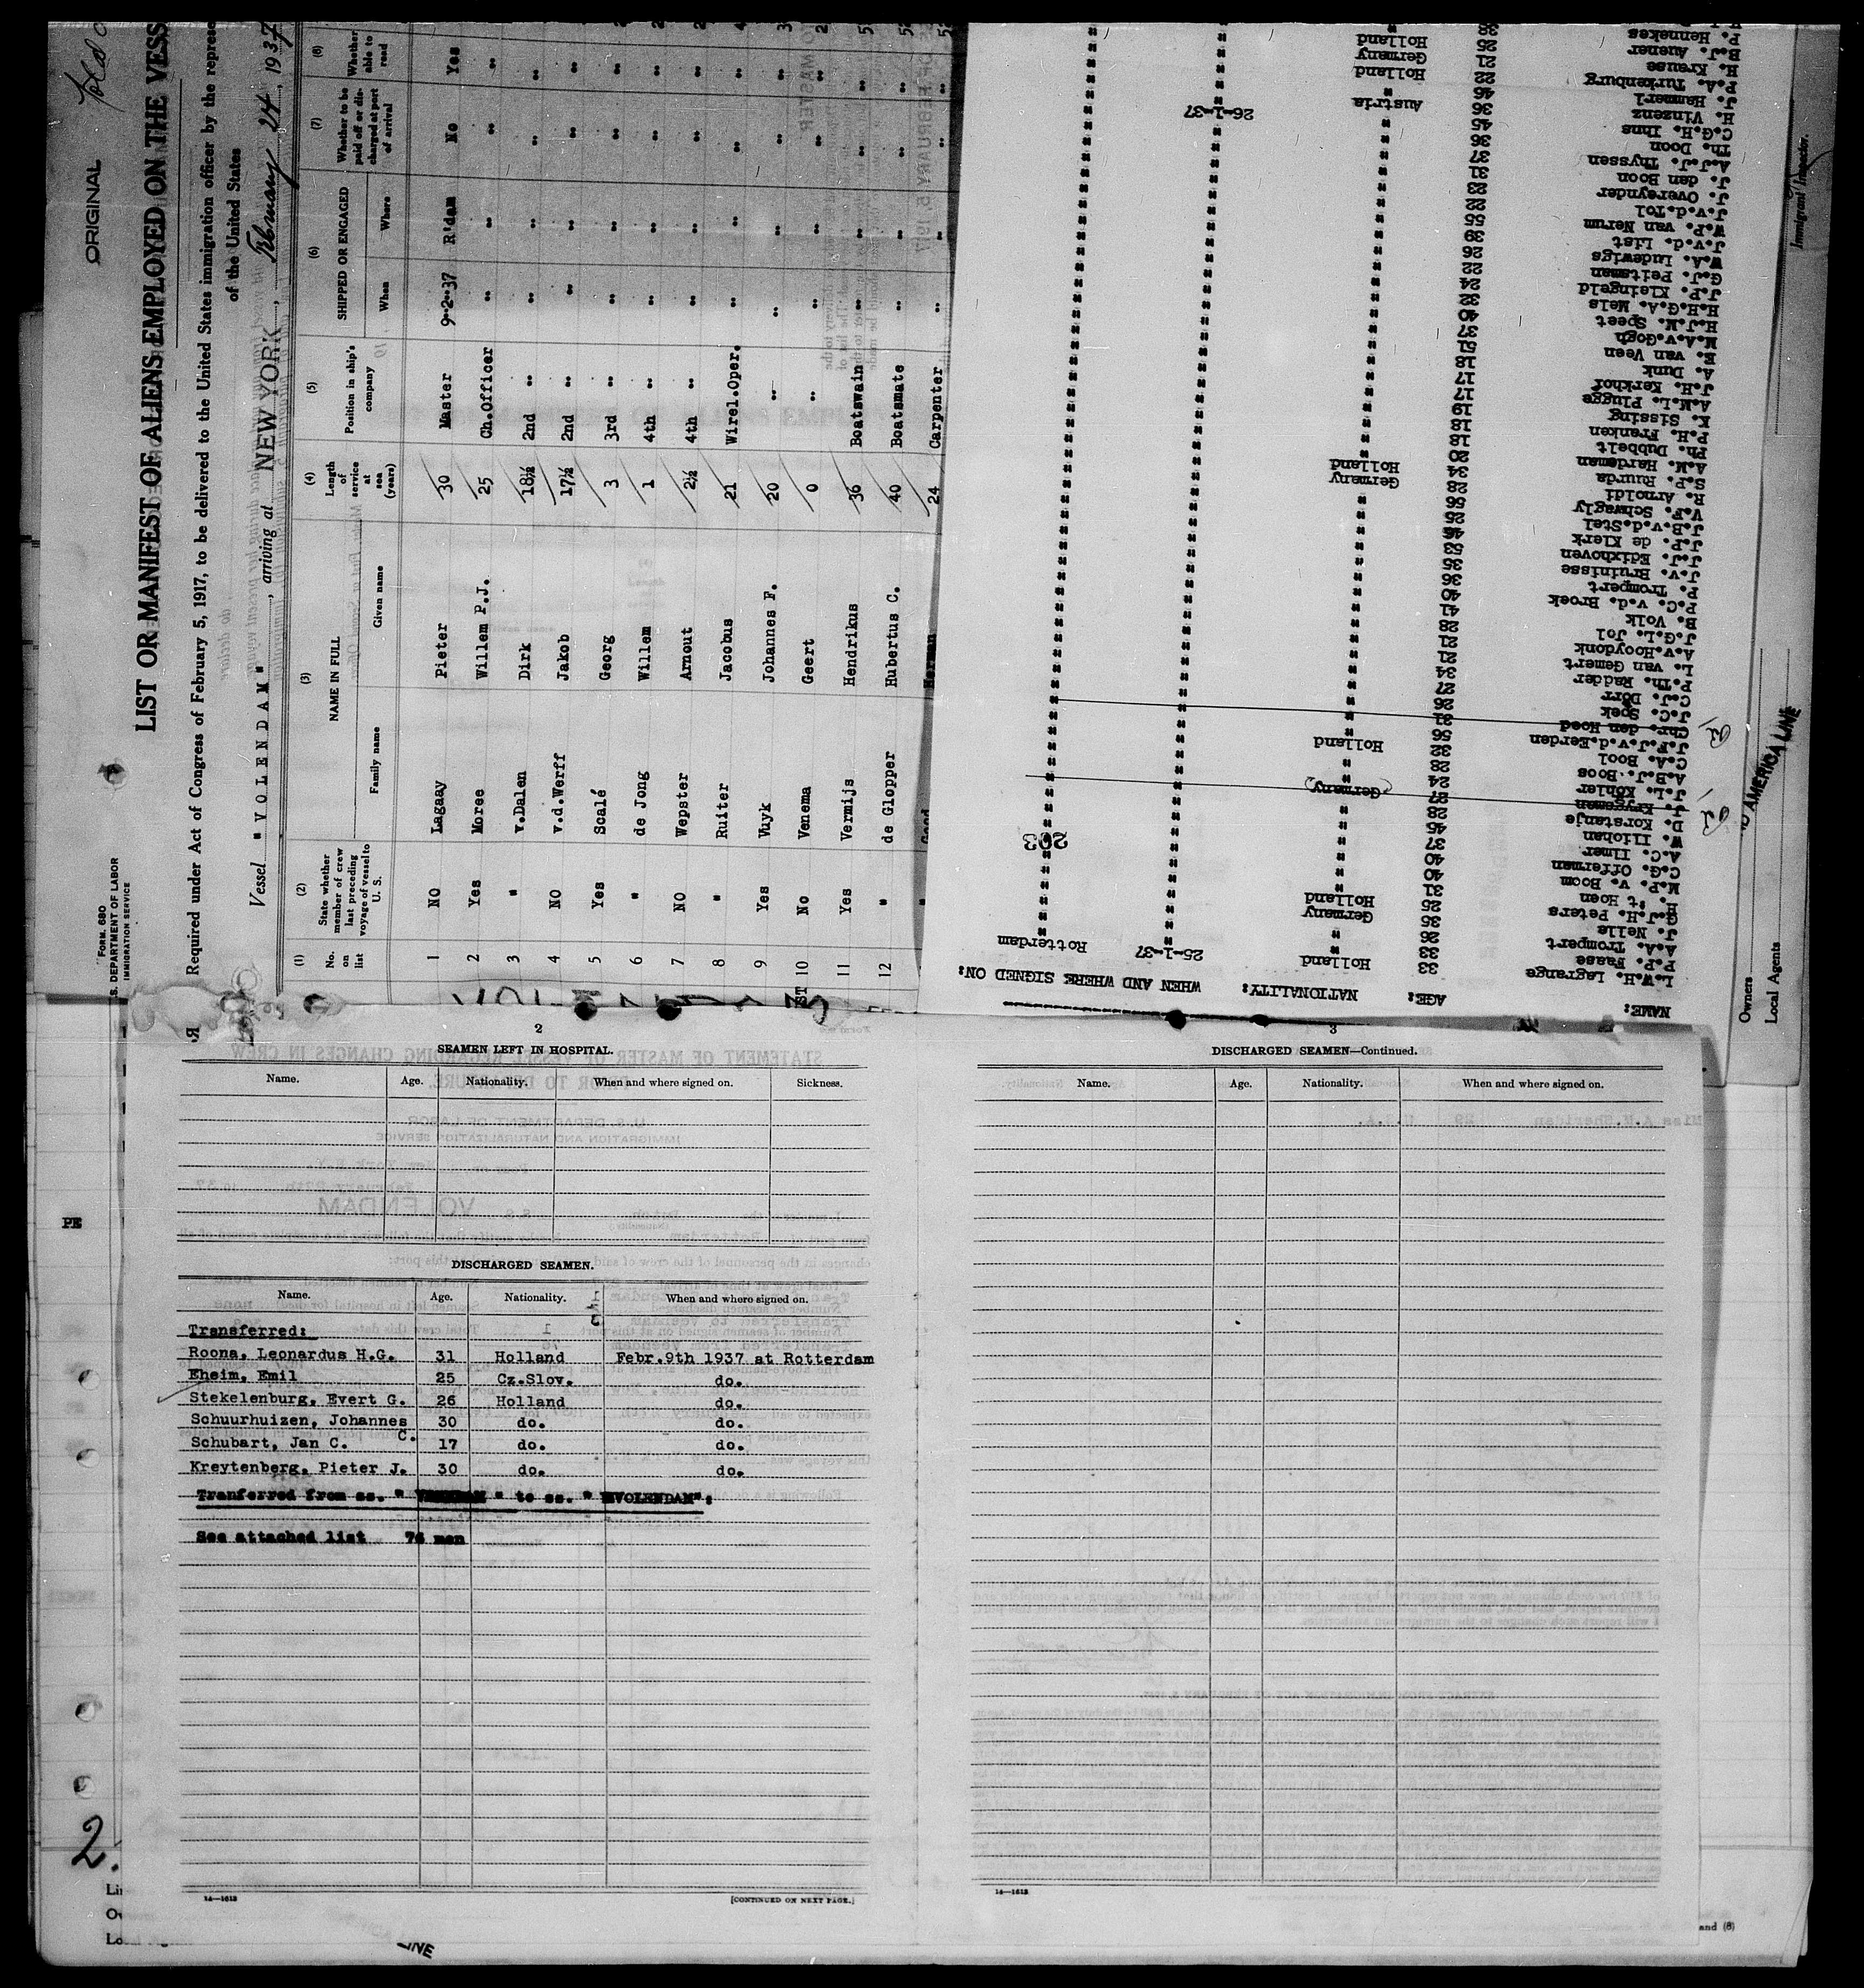 ORIGINAL
FORM 680
U.S. DEPARTMENT OF LABOR
IMMIGRATION SERVICE
LIST OR MANIFEST OF ALIENS EMPLOYED ON THE VESS
Required under Act of Congress of February 5, 1917, to be delivered to the United States immigration officer by the repres
of the United States
Vessel "VOLENDAM", arriving at NEW YORK, February 24, 1937
(1) (2) (3) (4) (5) (6) (7) (8)
No. on list
State whether member of crew last preceding voyage of vessel to U. S.
NAME IN FULL
Family name Given name
Length of service at sea (years)
Position in ship's company
SHIPPED OR ENGAGED
When Where
Whether to be paid off or discharged at port of arrival
Whether able to read
1 NO Lagaay Pieter 30 Master 9-2-37 R'dam No Yes
2 Yes Moree Willem P.J. 25 Ch.Officer " " " "
3 " v.Dalen Dirk 18½ 2nd " " " " "
4 NO v.d.Werff Jakob 17½ 2nd " " " " "
5 Yes Scalé Georg 3 3rd " " " " "
6 " de Jong Willem 1 4th " " " " "
7 NO Wepster Arnout 2½ 4th " " " " "
8 " Ruiter Jacobus 21 Wirel.Oper. " " " "
9 Yes Vuyk Johannes F. 20 " " " " "
10 No Venema Geert 0 " " " " "
11 Yes Vermijs Hendrikus 36 Boatswain " " " "
12 " de Glopper Hubertus C. 40 Boatsmate " " " "
24 Carpenter
NAME: AGE: NATIONALITY: WHEN AND WHERE SIGNED ON:
L.W.H. Lagrange 33 Holland 25-1-37 Rotterdam
P.P. Faase 33
A.A. Trompert 26
J. Nelis 35 Germany
G.J.H. Peters 25 Holland
H. 't Hoen 31
M.P. v. Boom 40
C.G. Offerman 40
A.C. Ilmer 37
W. Iliohan 45
D. Korstanje 28
J. Kruysman 27 Germany
J.L. Kohler 24
A.B.J. Boos 28
C.A. Bool 32 Holland
J.F.J.v.d.Eerden 56
Chr. den Hoed 31
J.C. Soek 26
C.J. Dorr 27
P.Th. Radder 34
L. van Gemert 21
A.v.Hooydonk 21
J.G.L. Jol 28
B. Volk 41
P.C. v.d. Broek 40
P. Trompert 36
J.v. Bruinisse 35
J.J. Edixhoven 53
J.P. de Klerk 46
J.B.v.d.Stel 25
V.F. Schwagly 56
R. Arnoldi 28 Germany
S.P. Ruurda 34 Holland
A.M. Hardeman 20
Ph. Dubbelt 18
P.H. Franken 18
K. Sissing 19
A.M.L. Plugge 17
J.H. Kerkhof 17
A. Dunk 18
E. van Veen 51
M.A.v.Gogh 37
H.J.M. Speet 40
H.H.G.A. Mels 32
J.P. Kleingeld 24
G.J. Peitsman 22
W.A. Ludewigs 26
J.v.d. List 39
W.P. van Nerum 55
J.v.d.Tol 22
J. Overeynder 23
J. den Boon 31
A.J.J. Thyssen 37
Th. Doon 36
C.G.H. Ihns 45
H. Vinzenz 36 26-1-37
J. Hammerl 46 Austria
P.A. Turkenburg 22 Holland
H. Krause 21 Germany
B.J. Auener 25 Holland
P. Hennekes
203
Immigrant Inspector.
Owners
Local Agents
D AMERICA LINE
PE
2
SEAMEN LEFT IN HOSPITAL.
Name. Age. Nationality. When and where signed on. Sickness.
DISCHARGED SEAMEN.
Name. Age. Nationality. When and where signed on.
Transferred:
Roona, Leonardus H.G. 31 Holland Febr.9th 1937 at Rotterdam
Eheim, Emil 25 Cz.Slov. do.
Stekelenburg, Evert G. 26 Holland do.
Schuurhuizen, Johannes C. 30 do. do.
Schubart, Jan C. 17 do. do.
Kreytenberg, Pieter J. 30 do. do.
Tranferred from ss. " " to ss. "VOLENDAM":
See attached list 76 men
14—1613
[CONTINUED ON NEXT PAGE.]
3
DISCHARGED SEAMEN—Continued.
Name. Age. Nationality. When and where signed on.
14—1613
2.
and (8)
LINE